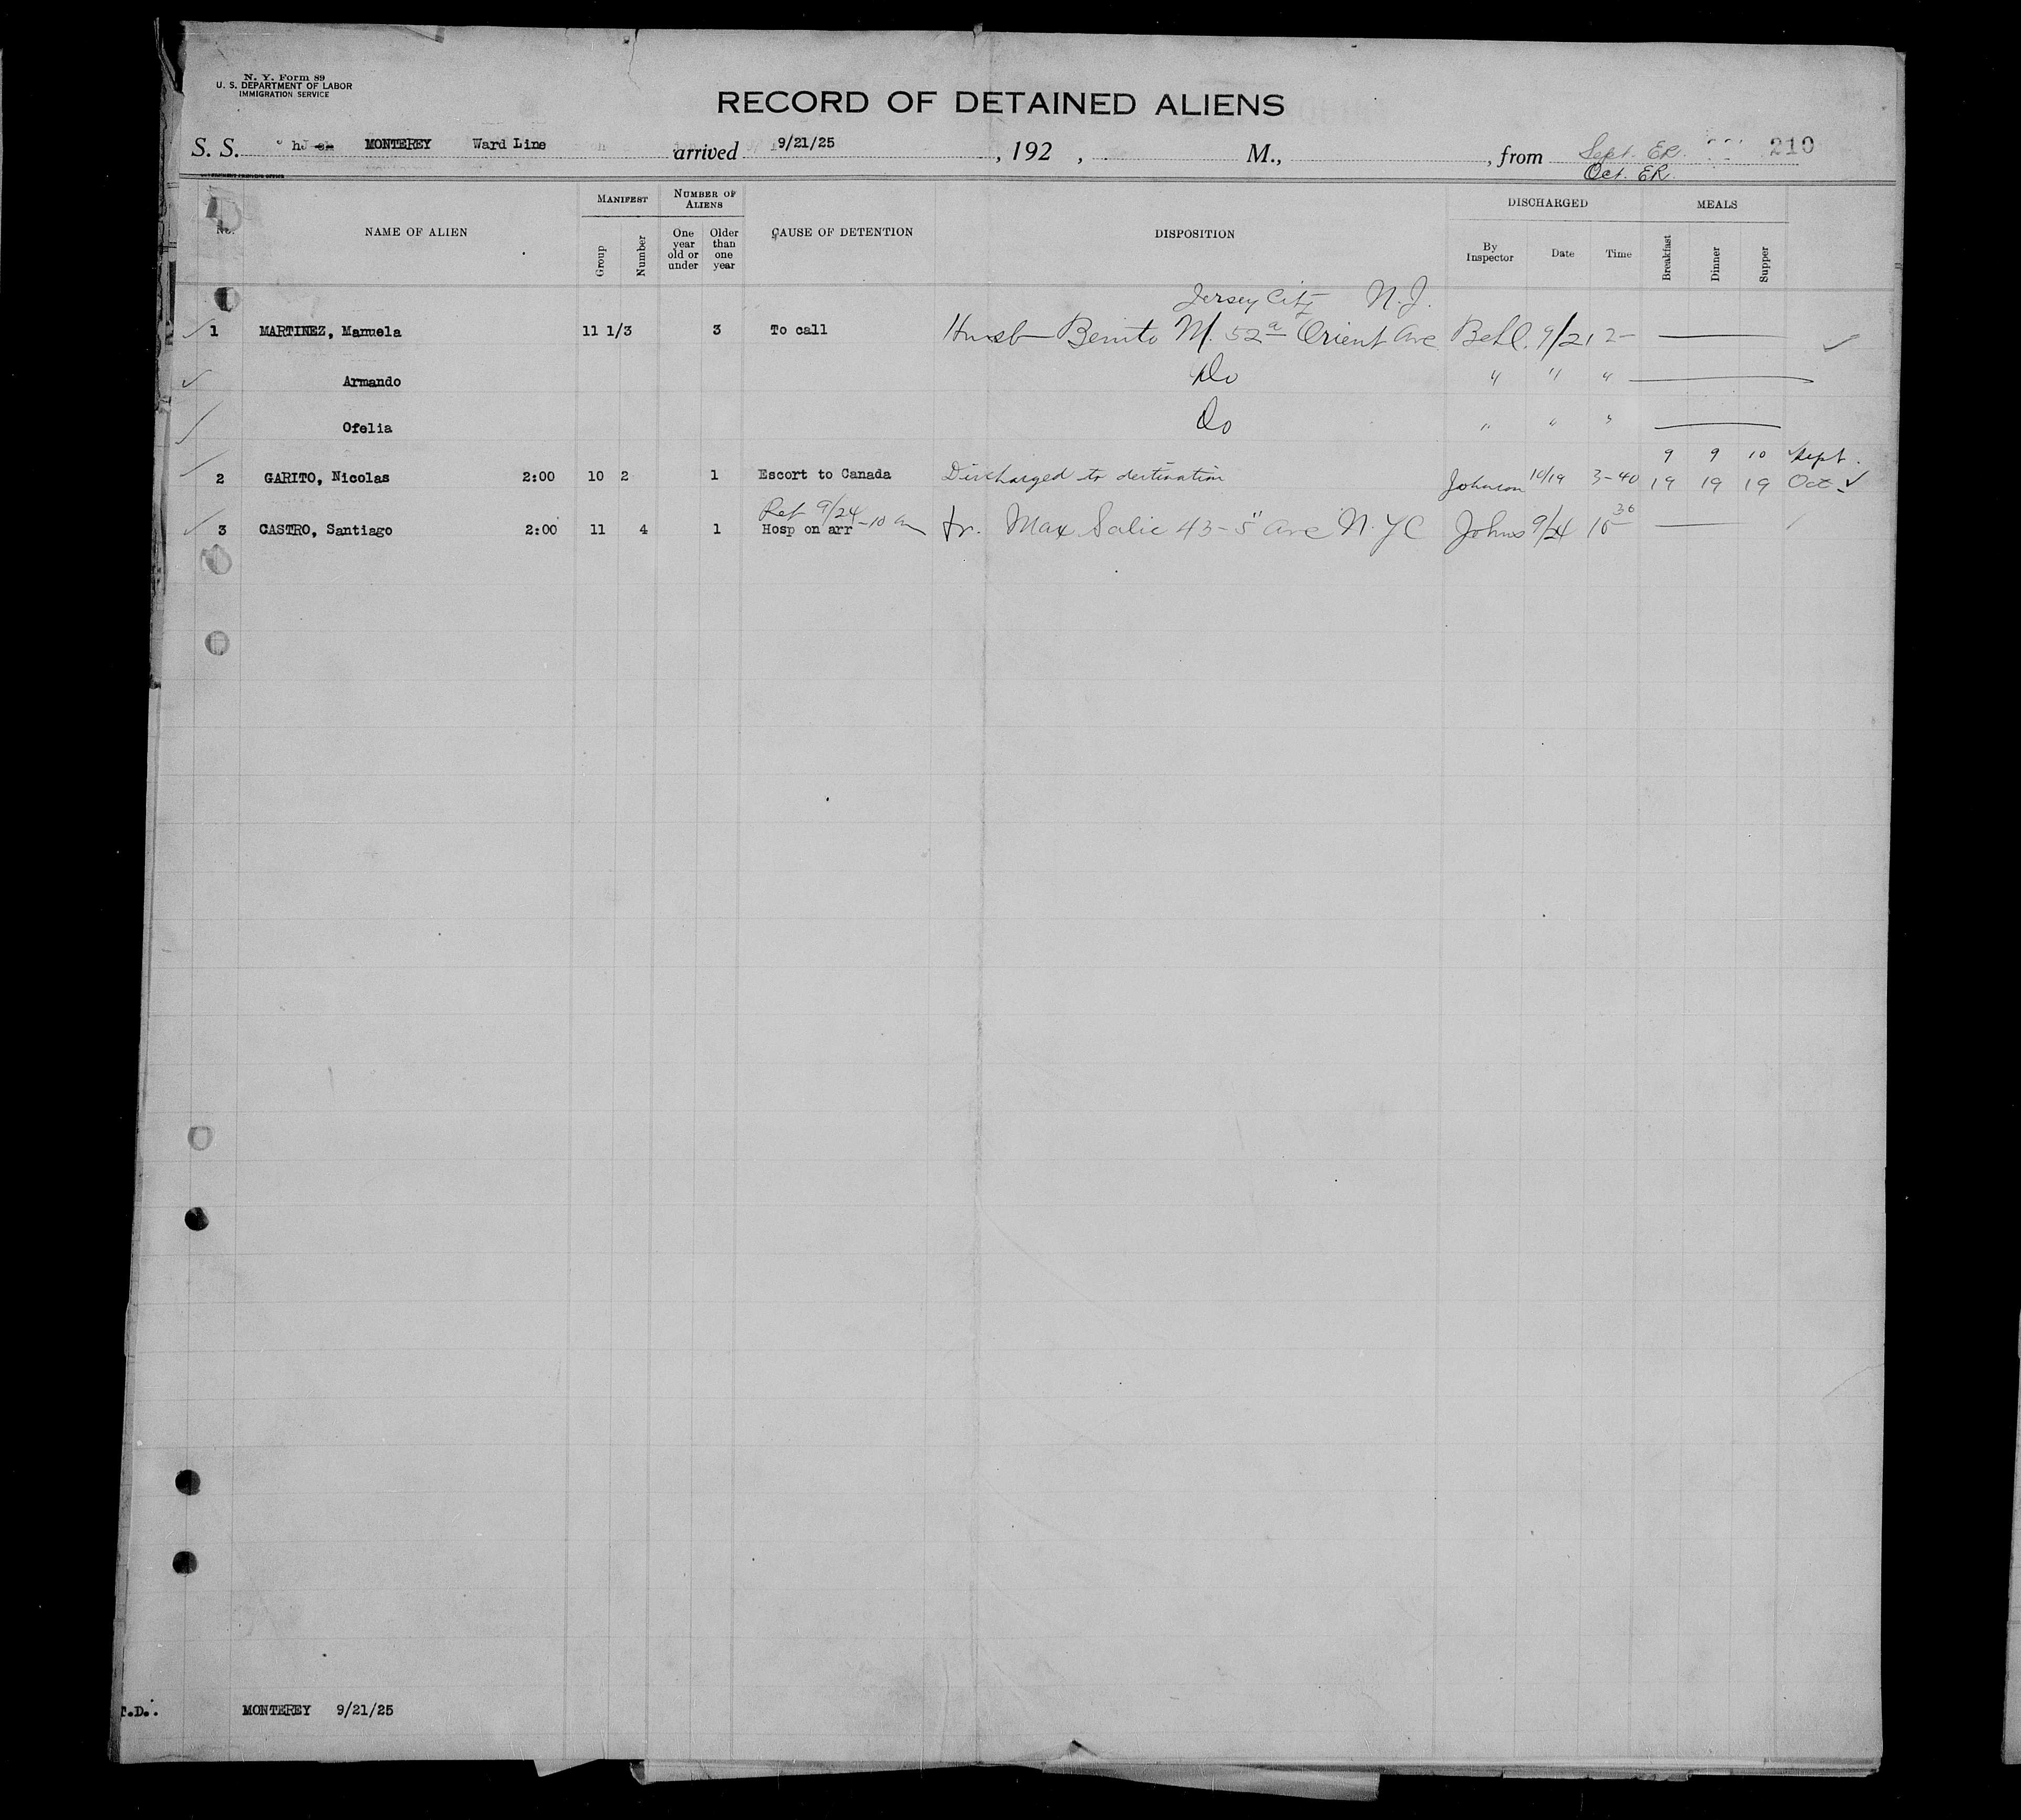 N. Y. Form 89
U. S. DEPARTMENT OF LABOR
IMMIGRATION SERVICE
RECORD OF DETAINED ALIENS
S. S. MONTEREY Ward Line arrived 9/21/25, 192 , M., , from Sept. ER. 210
Oct. ER.
GOVERNMENT PRINTING OFFICE
No. NAME OF ALIEN MANIFEST Group Number NUMBER OF ALIENS One year old or under Older than one year CAUSE OF DETENTION DISPOSITION DISCHARGED By Inspector Date Time MEALS Breakfast Dinner Supper
Jersey City N.J.
1 MARTINEZ, Manuela 11 1/3 3 To call Husb Benito M. 52a Orient Ave 9/21 2-
Armando Do " " "
Ofelia Do " " "
9 9 10 Sept.
2 GARITO, Nicolas 2:00 10 2 1 Escort to Canada Discharged to destination Johnson 10/19 3-40 19 19 19 Oct
Ret 9/24-10 am
3 CASTRO, Santiago 2:00 11 4 1 Hosp on arr fr. Max Salic 43-5" Ave N.Y.C Johns 9/24 10 30
T.D.. MONTEREY 9/21/25